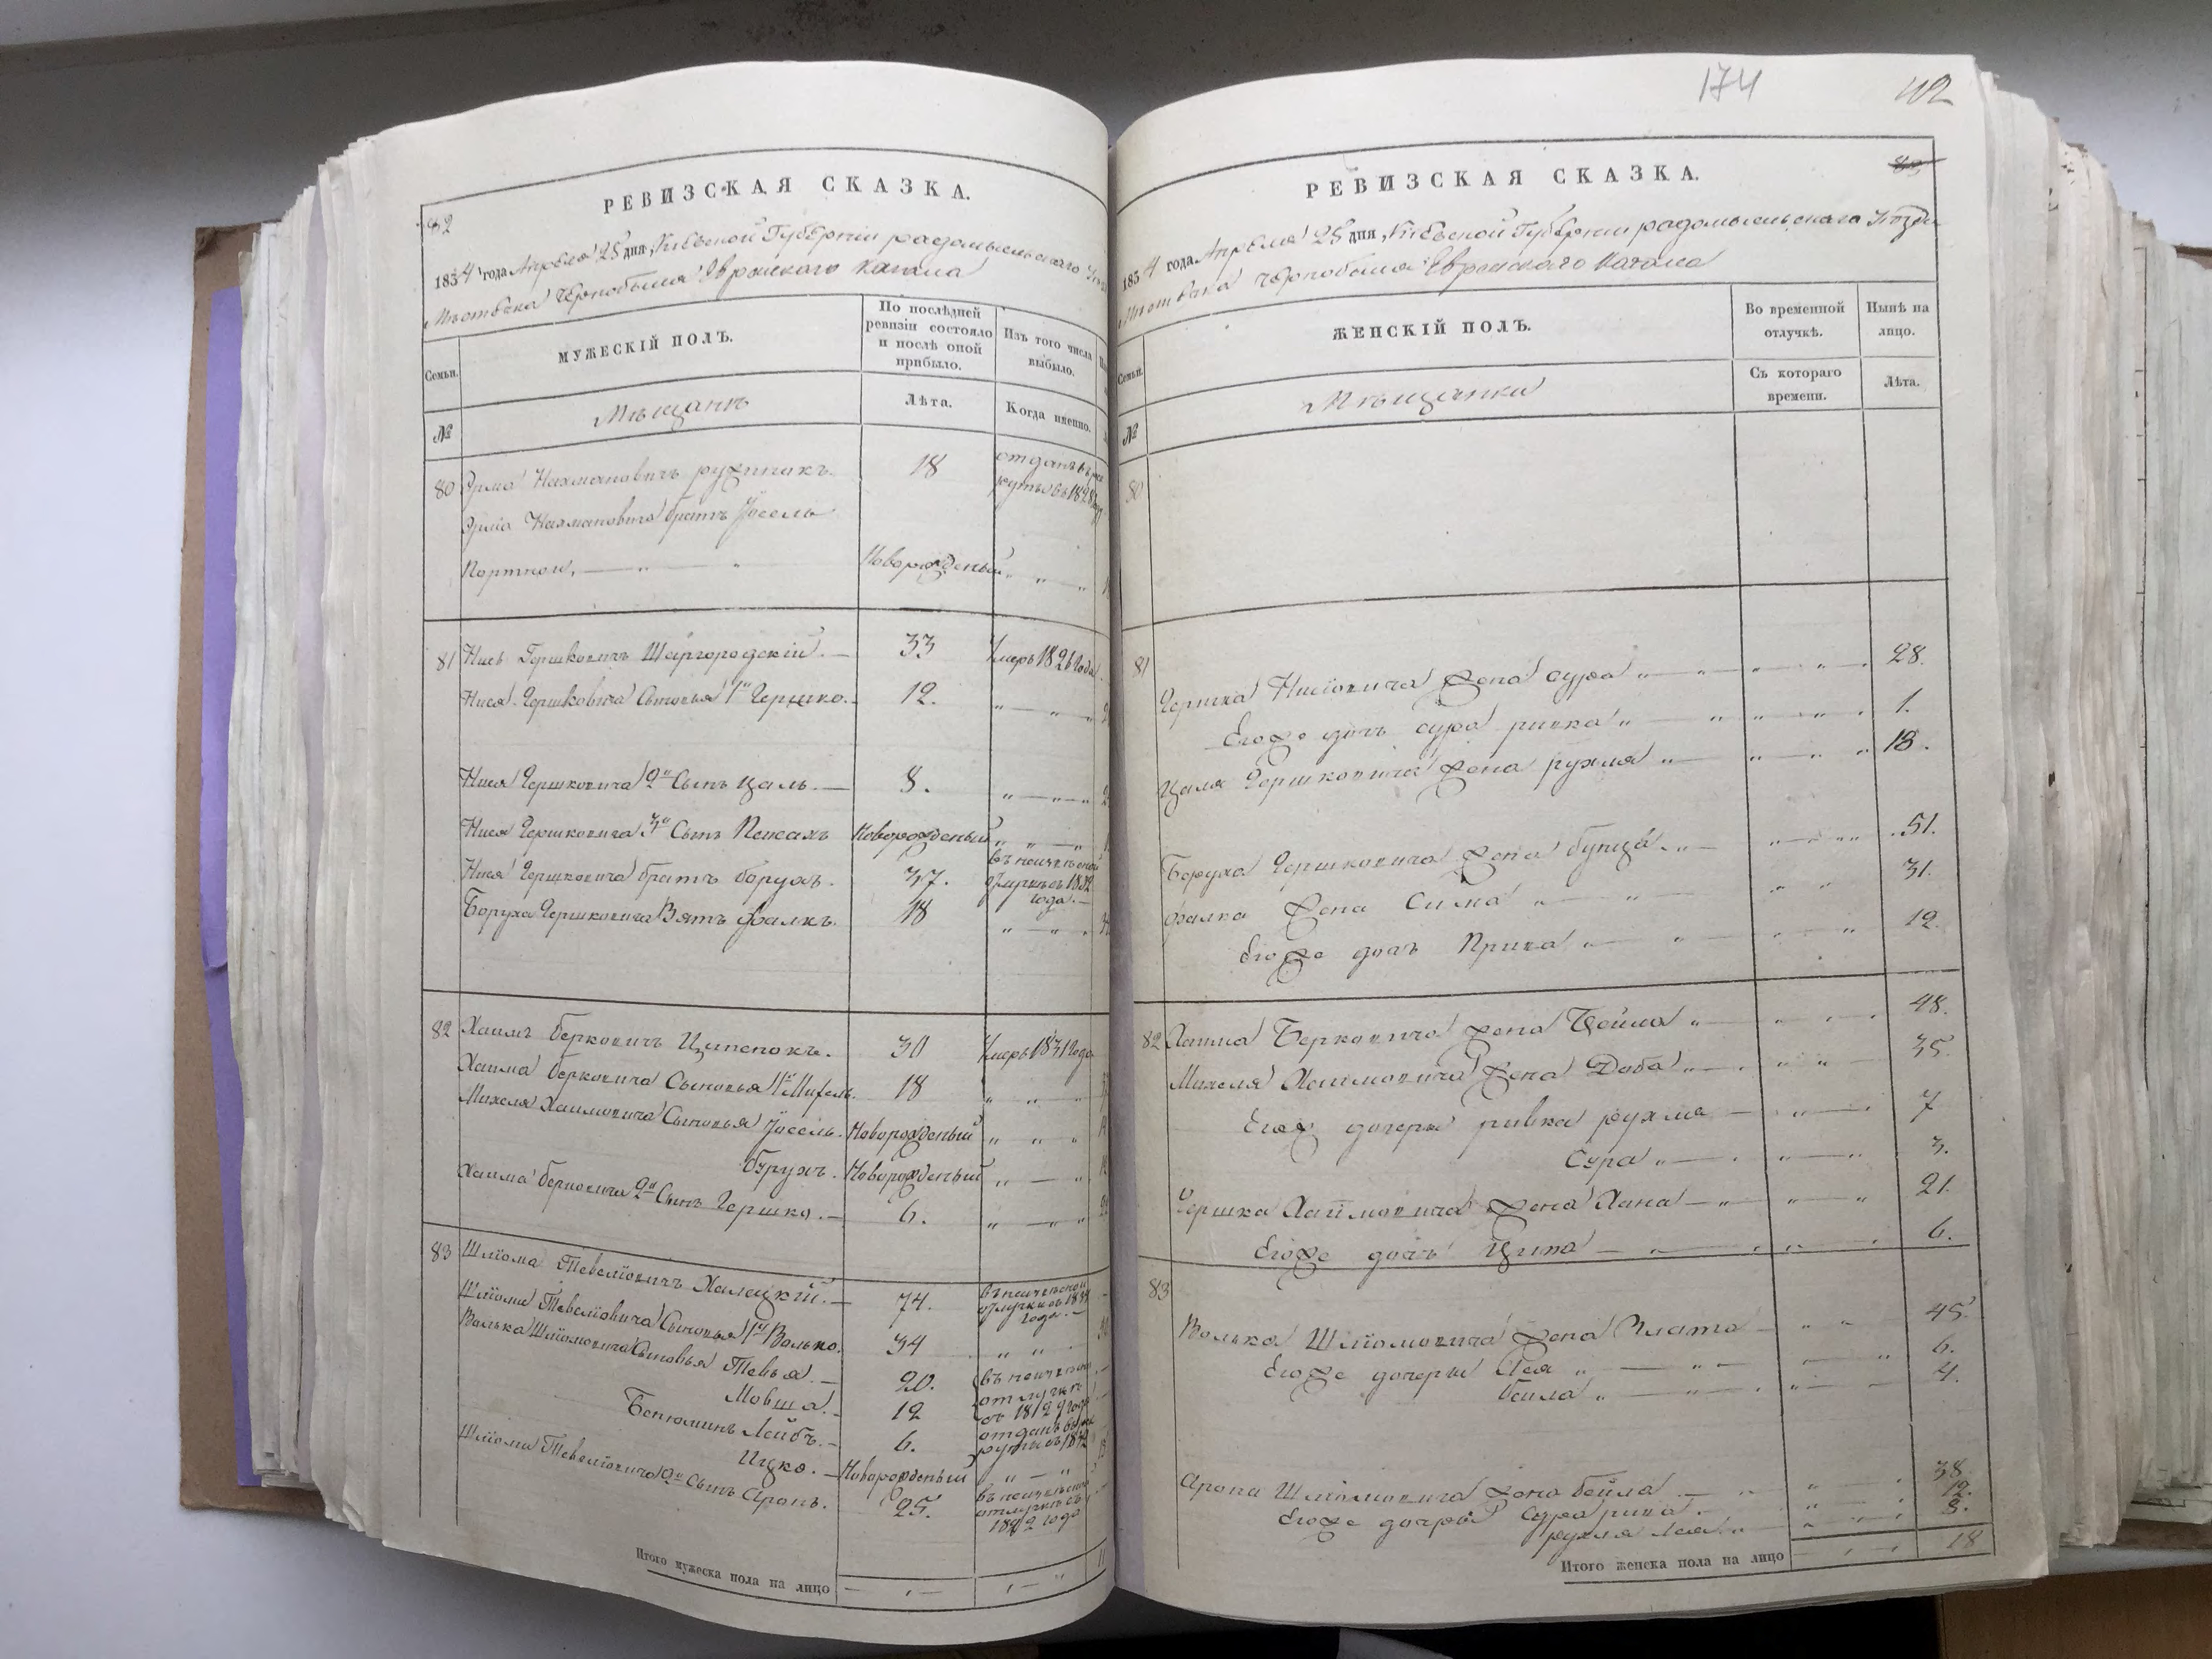 82
РЕВИЗСКАЯ СКАЗКА.
1834 года Апреля 25 дня, Киевской Губернии радомысльскаго
Мѣстечка Чернобыля Еврейского кагала
Семьи.
МУЖЕСКІЙ ПОЛЪ.
По послѣдней ревизіи состояло и послѣ оной прибыло.
Изъ того числа выбыло.
№
Мѣщанѣ
Лѣта.
Когда именно.
80 Нахмановичъ 18 отданъ въ
въ 1828
Нахмановича братъ Іосель
Портной, Новорожденый
81 Нись Гершковичъ Шаргородскій. 33 Умеръ 1826 года
Нися Гершковича Сыновья 1й Гершко. 12.
Нися Гершковича 2й Сынъ Цаль. 8.
Нися Гершковича 3й Сынъ Пейсахъ Новорожденый
Нися Гершковича братъ борухъ. 37. въ неизвѣсной отлучкѣ съ 1832 года.
Боруха Гершковича Зять Фалкъ. 18
82 Хаимъ Берковичъ 30 Умеръ 1831 года
Хаима Берковича Сыновья 1й Михель. 18
Михеля Хаимовича Сыновья Іосель. Новорожденый
борухъ. Новорожденый
Хаима Берковича 2й Сынъ Гершко. 6.
83 Шліома Тевеліовичъ Халецкій. 74. въ неизвѣсной отлучкѣ съ года.
Шліомы Тевеліовича Сыновья 1й Волько. 34
Волька Шліомовича Сыновья Тевья. 20. въ неизвѣсной отлучкѣ съ 1829 года
Мовша. 12
Бенюминъ Лейбъ. 6. отданъ въ
Ицко. Новорожденый
Шліома Тевеліовича 2й Сынъ Аронъ. 25. въ неизвѣсной отлучкѣ съ года
Итого мужеска пола на лицо
174
42
РЕВИЗСКАЯ СКАЗКА.
1834 года Апреля 25 дня, Киевской Губернии радомысльскаго Уезда
Мѣстечка Чернобыля Еврейского кагала
Семьи.
ЖЕНСКІЙ ПОЛЪ.
Во временной отлучкѣ.
Нынѣ на лицо.
№
Мѣщанки
Съ котораго времени.
Лѣта.
80
81
Гершка Нисіовича жена сура 28.
Егоже дочь сура ривка 1.
Цаля Гершковича жена рухля 18.
Боруха Гершковича жена бунца 51.
Фалка жена Сима 31.
Егоже дочь 12.
82 Хаима Берковича жена Цейма 48.
Михеля Хаимовича жена Доба 35.
Егож дочери ривка рухля 7
Сура 3.
Гершка Хаймовича жена Хана 21.
Егоже дочь Ципа 6.
83
Волька Шліомовича жена Злата 45.
Егоже дочери Лея 6.
бейла 4.
Арона Шліомовича жена бейла 38.
Егоже дочери Сура ривка 12.
рухля Лея 8.
Итого женска пола на лицо 18